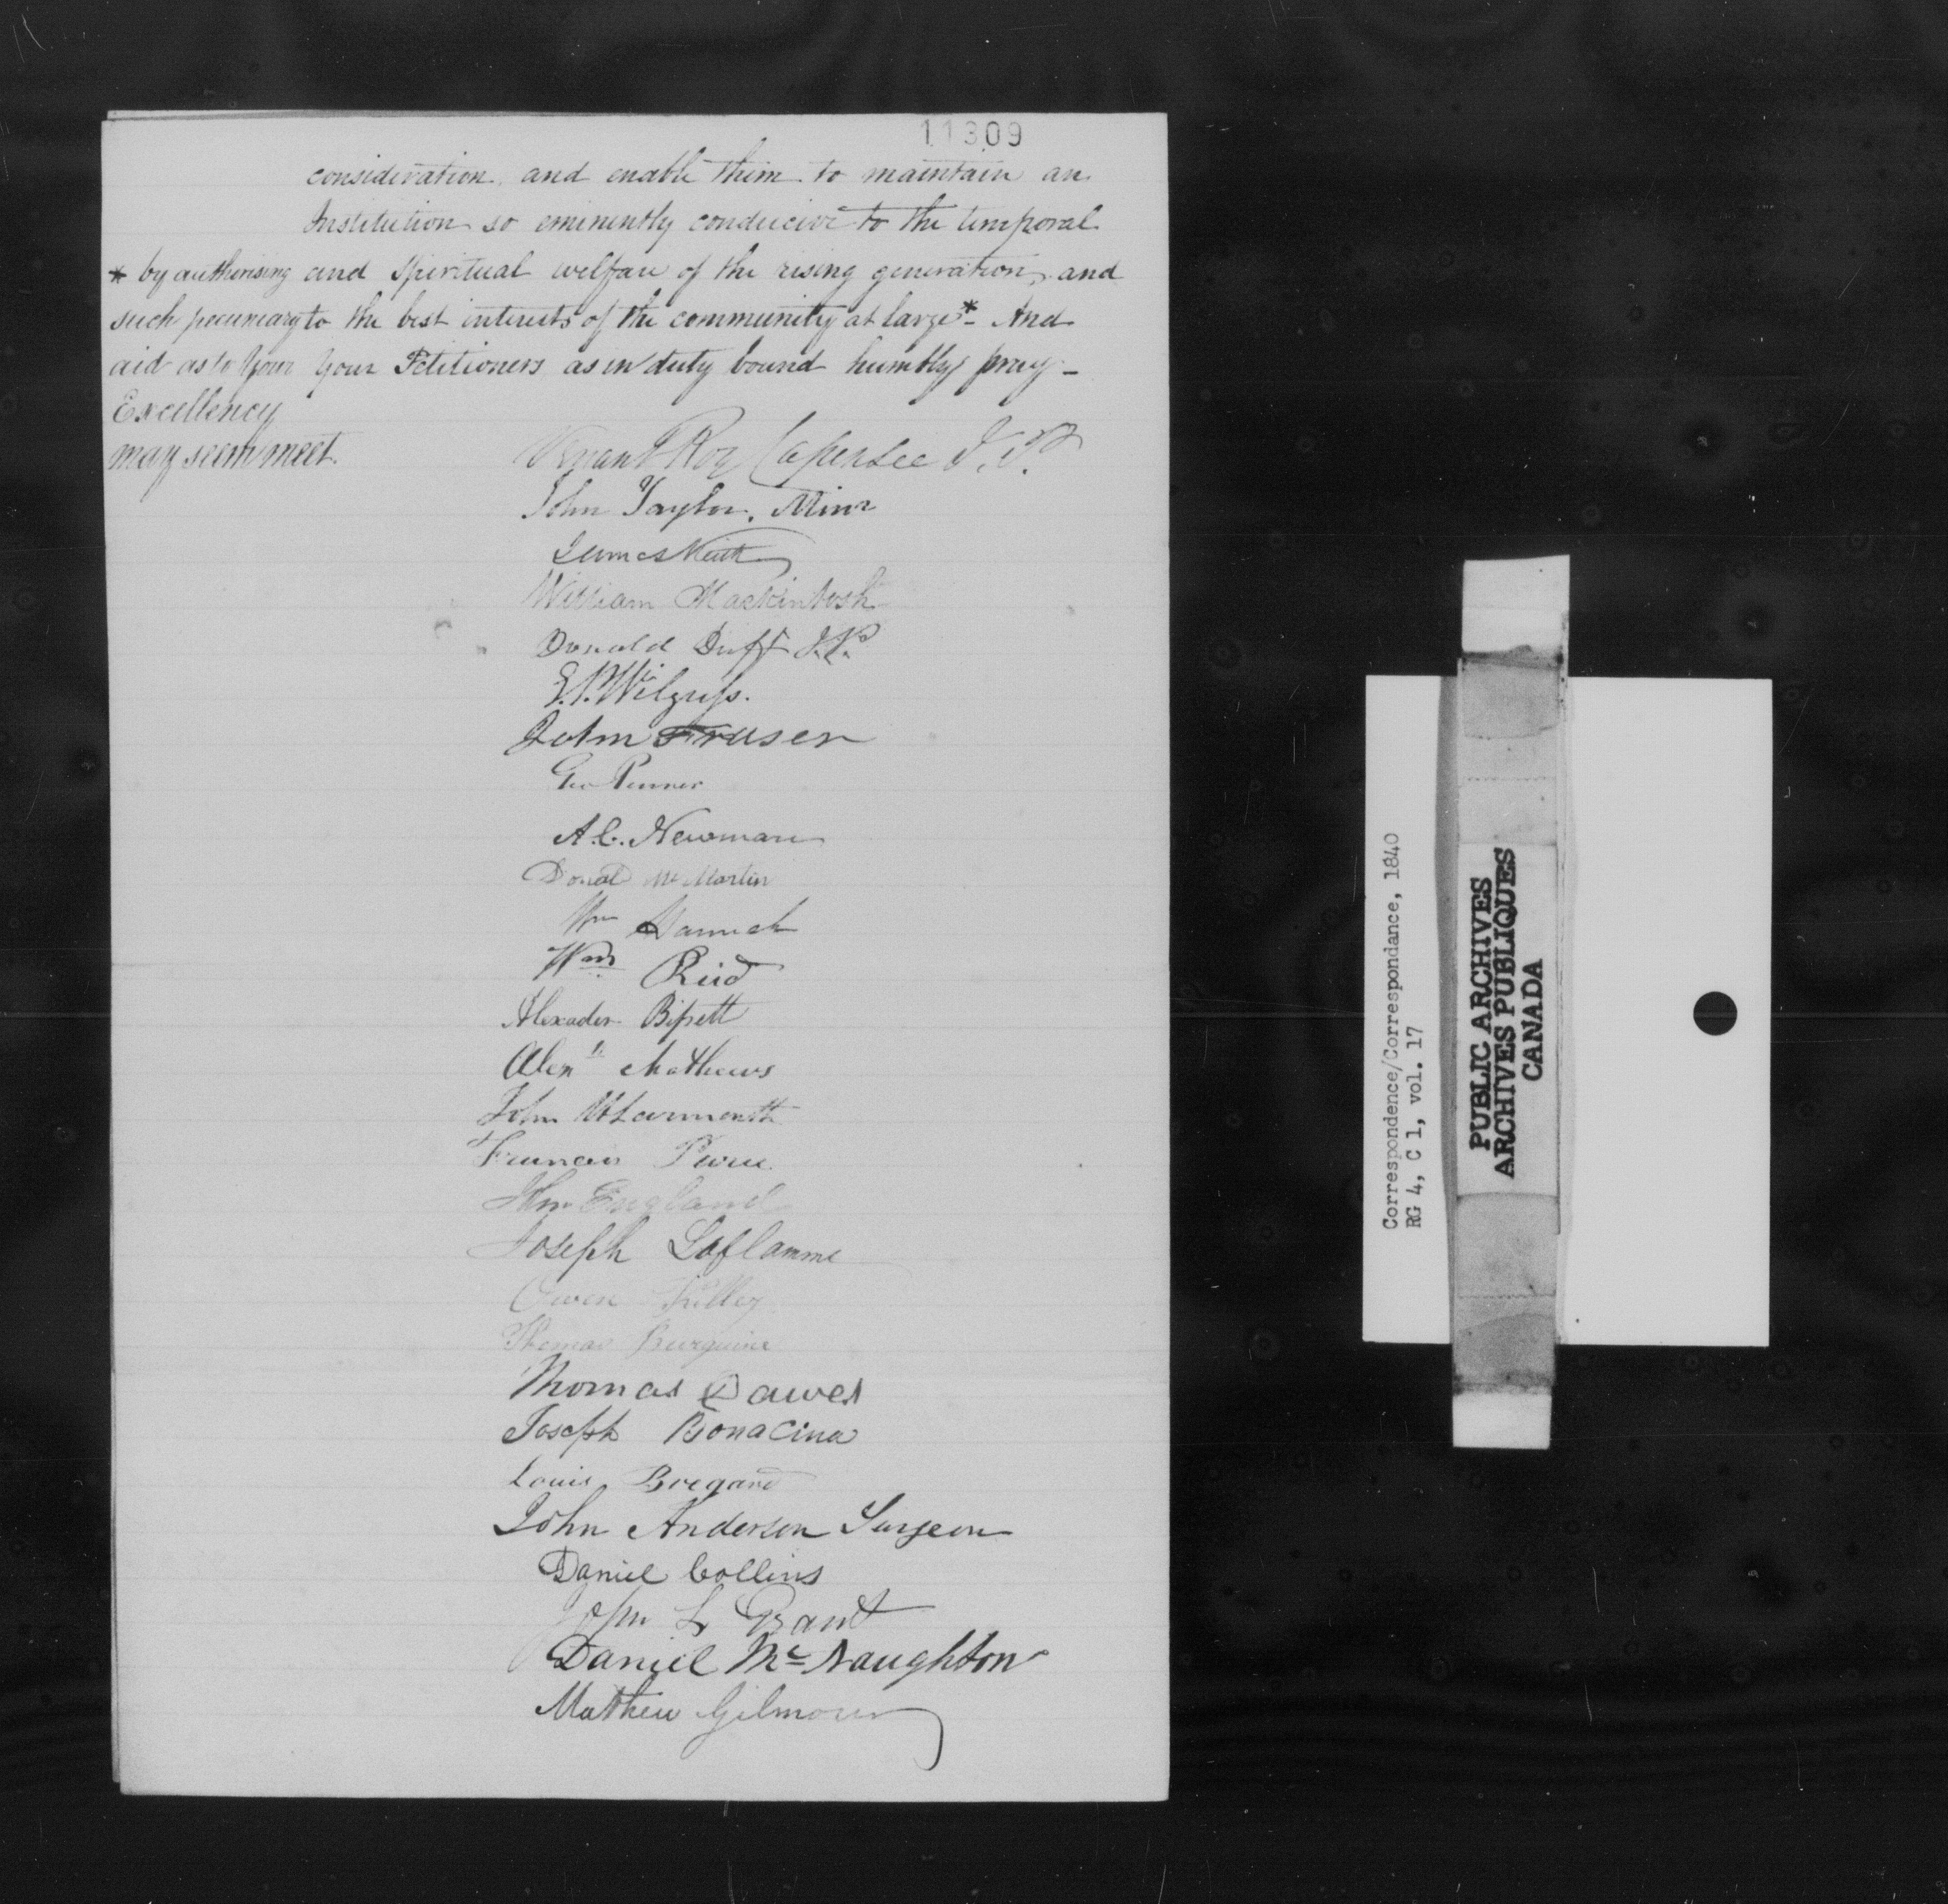 11309
consideration and enable them to maintain an
Institution so eminently conducive to the temporal
and Spiritual welfare of the rising generation, and
to the best interests of the community at large * - And
your Petitioners as in duty bound humbly pray -
* by authorising
such pecuniary
aid as to your
Excellency
may seem meet.
Roy J.P.
John Taylor, Minr
James Keith
William Mackintosh
Donald Duff J.P.
Wilgress.
John Fraser
Geo Penner
A.C. Newman
Donald McMartin
Wm
Wm Reid
Alexader Bissett
Alexr Mathews
John
Francis
John England
Joseph Laflamme
Owen Killey
Thomas Burguine
Thomas Dawes
Joseph Bonacina
Louis Bregard
John Anderson Surgeon
Daniel Collins
John L Grant
Daniel Mc Naughton
Mathew Gilmour
Correspondence/Correspondance, 1840
RG 4, C 1, vol. 17
PUBLIC ARCHIVES
ARCHIVES PUBLIQUES
CANADA